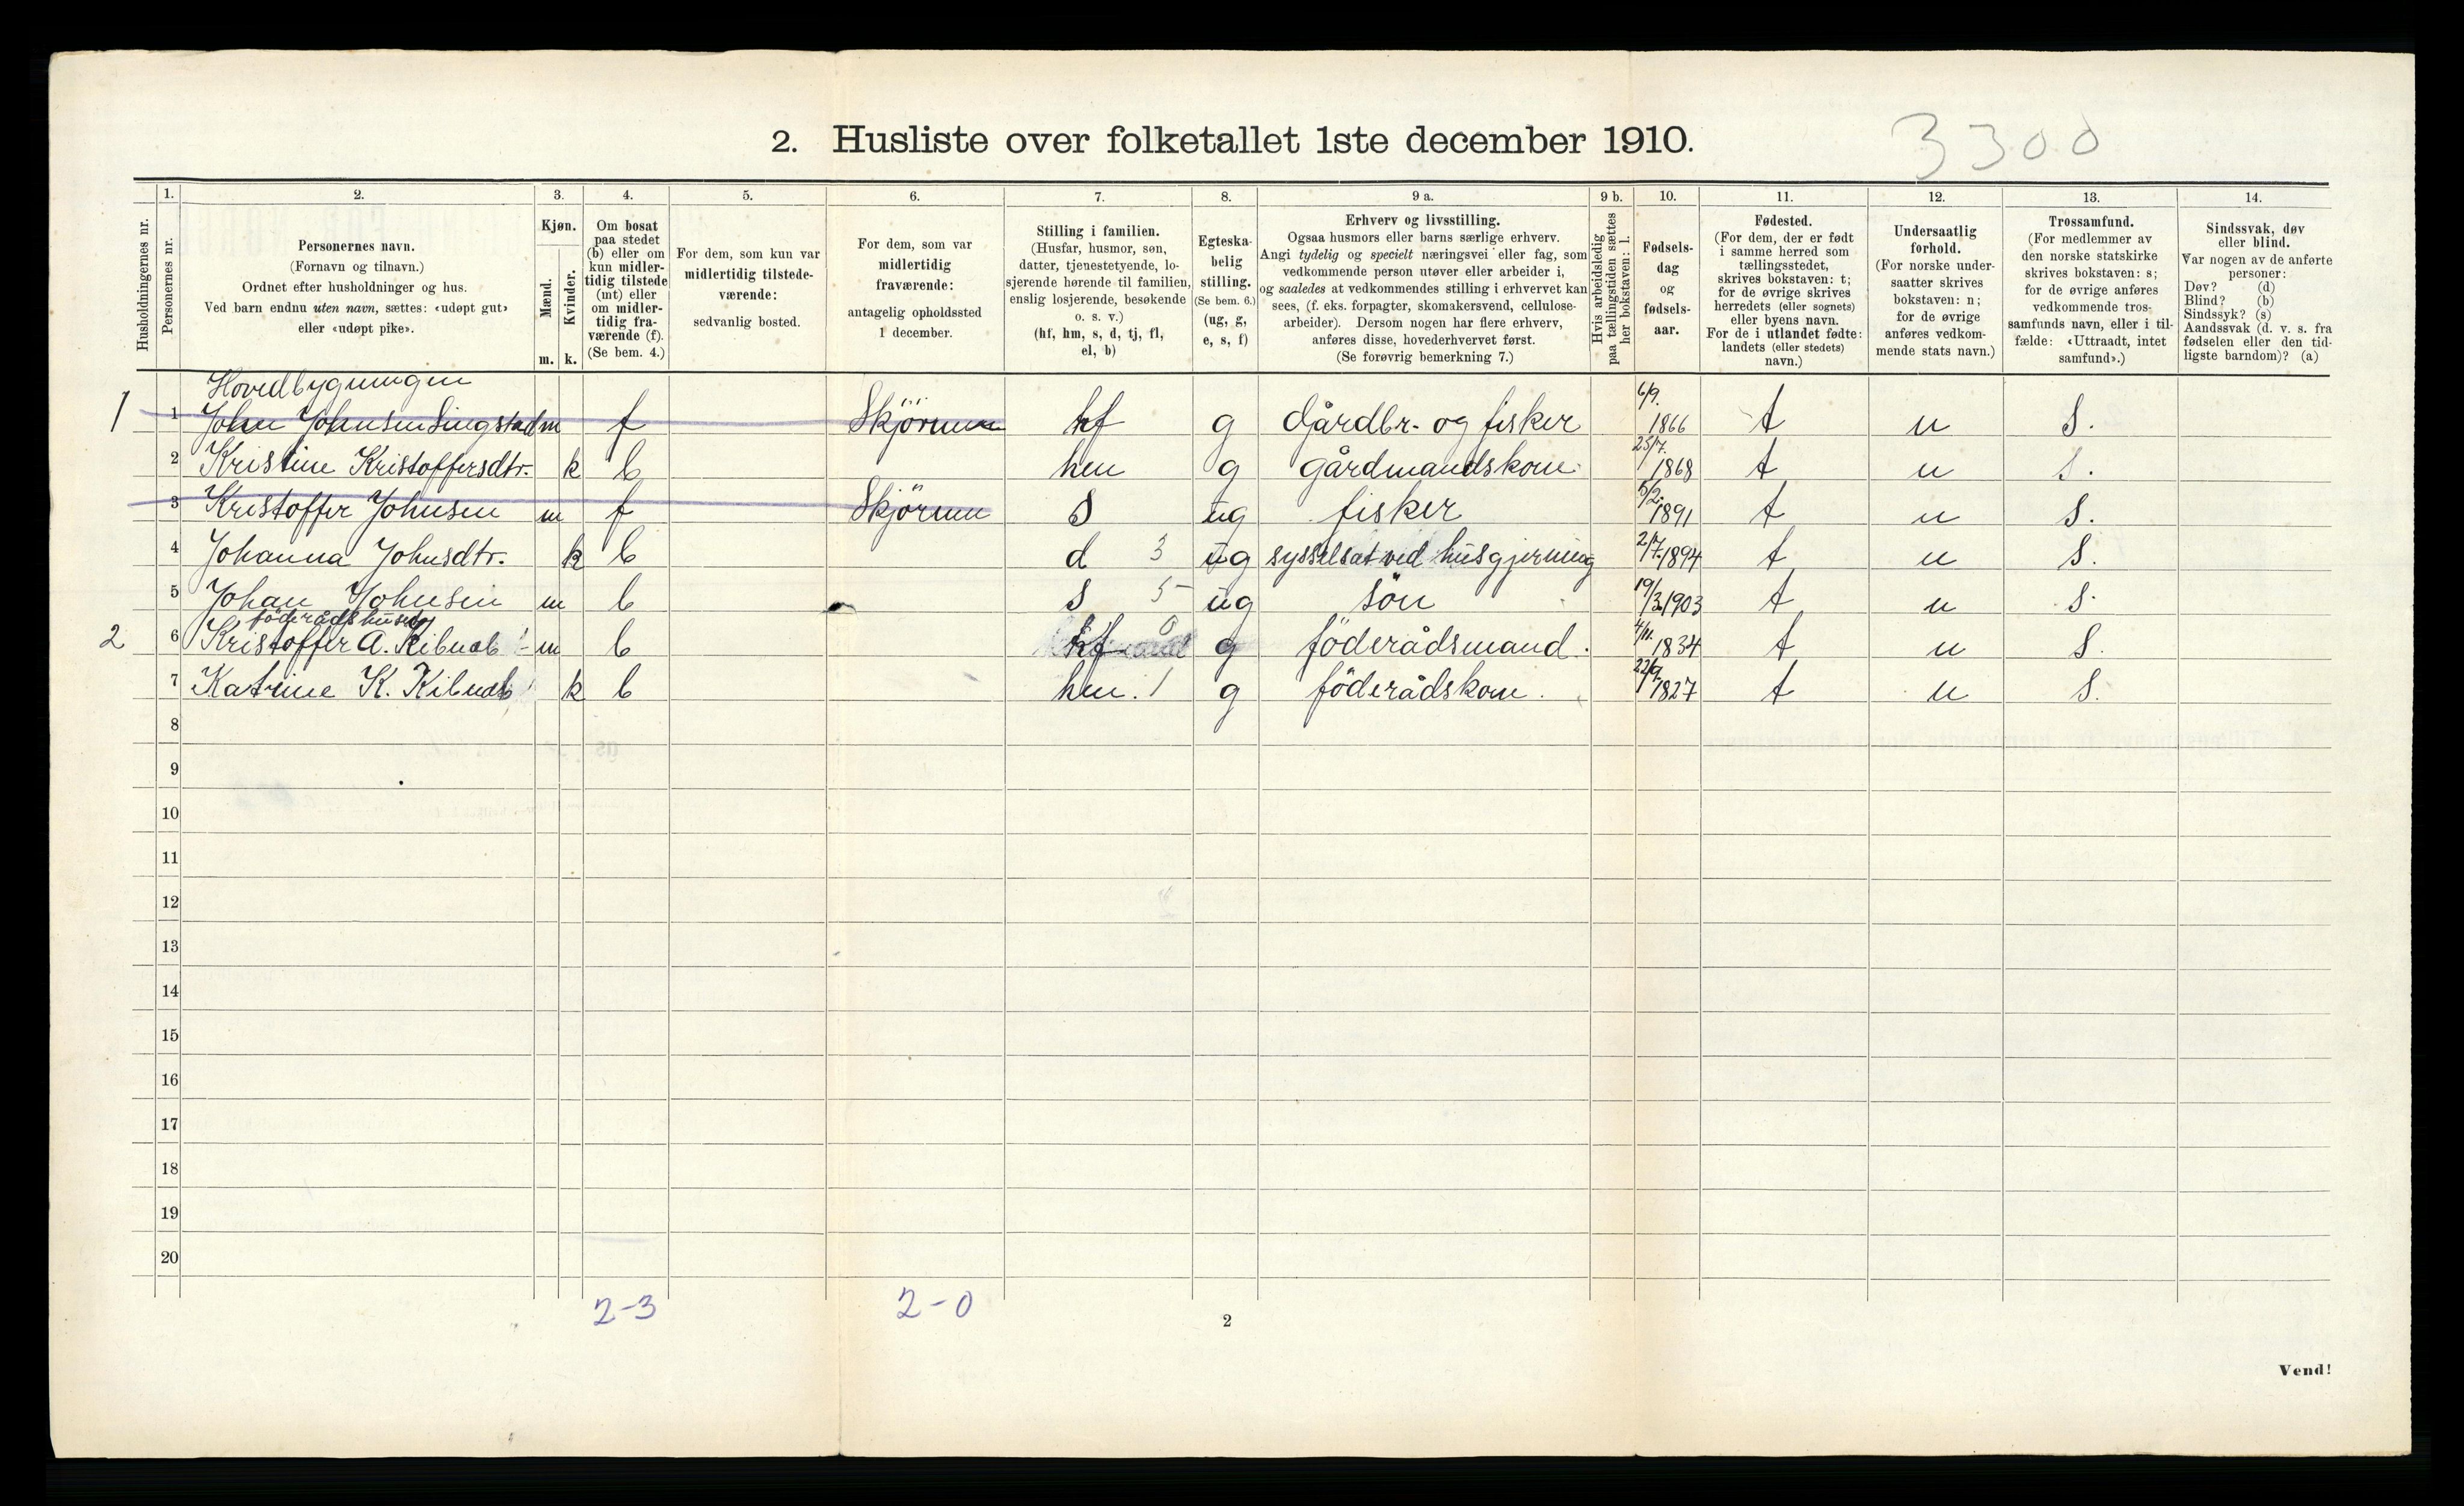 3300
2. Husliste over folketallet 1ste december 1910.
Husholdningernes nr.
1.
Personernes nr.
2.
Personernes navn.
(Fornavn og tilnavn.)
Ordnet efter husholdninger og hus.
Ved barn endnu uten navn, sættes: «udøpt gut»
eller «udøpt pike».
3.
Kjøn.
Mænd.
Kvinder.
m. k.
4.
Om bosat
paa stedet
(b) eller om
kun midler-
tidig tilstede
(mt) eller
om midler-
tidig fra-
værende (f).
(Se bem. 4.)
5.
For dem, som kun var
midlertidig tilstede-
værende:
sedvanlig bosted.
6.
For dem, som var
midlertidig
fraværende:
antagelig opholdssted
1 december.
7.
Stilling i familien.
(Husfar, husmor, søn,
datter, tjenestetyende, lo-
sjerende hørende til familien,
enslig losjerende, besøkende
o. s. v.)
(hf, hm, s, d, tj, fl,
el, b)
8.
Egteska-
belig
stilling.
(Se bem. 6.)
(ug, g,
e, s, f)
9 a.
Erhverv og livsstilling.
Ogsaa husmors eller barns særlige erhverv.
Angi tydelig og specielt næringsvei eller fag, som
vedkommende person utøver eller arbeider i,
og saaledes at vedkommendes stilling i erhvervet kan
sees, (f. eks. forpagter, skomakersvend, cellulose-
arbeider). Dersom nogen har flere erhverv,
anføres disse, hovederhvervet først.
(Se forøvrig bemerkning 7.)
9 b.
Hvis arbeidsledig
paa tællingstiden sættes
her bokstaven: l.
10.
Fødsels-
dag
og
fødsels-
aar.
11.
Fødested.
(For dem, der er født
i samme herred som
tællingsstedet,
skrives bokstaven: t;
for de øvrige skrives
herredets (eller sognets)
eller byens navn.
For de i utlandet fødte:
landets (eller stedets)
navn.)
12.
Undersaatlig
forhold.
(For norske under-
saatter skrives
bokstaven: n;
for de øvrige
anføres vedkom-
mende stats navn.)
13.
Trossamfund.
(For medlemmer av
den norske statskirke
skrives bokstaven: s;
for de øvrige anføres
vedkommende tros-
samfunds navn, eller i til-
fælde: «Uttraadt, intet
samfund».)
14.
Sindssvak, døv
eller blind.
Var nogen av de anførte
personer:
Døv? (d)
Blind? (b)
Sindssyk? (s)
Aandssvak (d. v. s. fra
fødselen eller den tid-
ligste barndom)? (a)
Hovedbygningen
1 1 John Johnsen Singstad m f Skjörunn hf g Gårdbr. og fisker 6/9. 1866 t n S.
2 Kristine Kristoffersdtr. k b hm g gårdmandskone 25/7. 1868 t n S.
3 Kristoffer Johnsen m f Skjörunn S ug fisker 5/2. 1891 t n S.
4 Johanna Johnsdtr. k b d 3 ug sysselsat ved husgjerning 2/7. 1894 t n S.
5 Johan Johnsen m b S 5 ug sön 19/3. 1903 t n S.
föderådshuset
2 6 Kristoffer A. Kilnæb m b hf 0 g föderådsmand. 4/11. 1834 t n S.
7 Katrine K. Kilnæb k b hm. 1 g föderådskone. 22/9. 1827 t n S.
8
9
10
11
12
13
14
15
16
17
18
19
20
2-3 2-0
2
Vend!